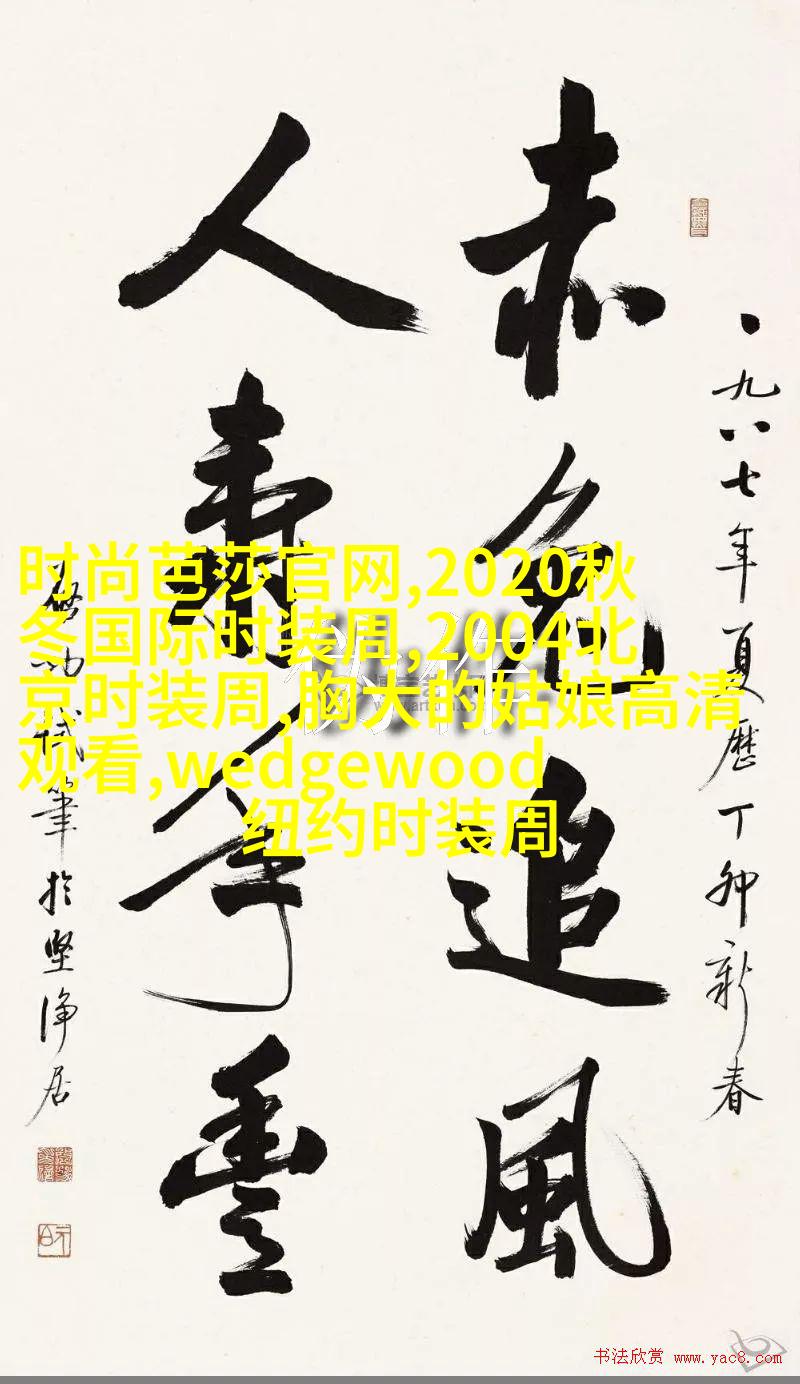 一九八七年夏历丁卯新春
赤兔追風
人壽年豊
启功试筆於坚净居
时尚芭莎官网,2020秋
冬国际时装周,2004北
京时装周,胸大的姑娘高清
观看,wedgewood
纽约时装周
书法欣赏 www.yac8.com